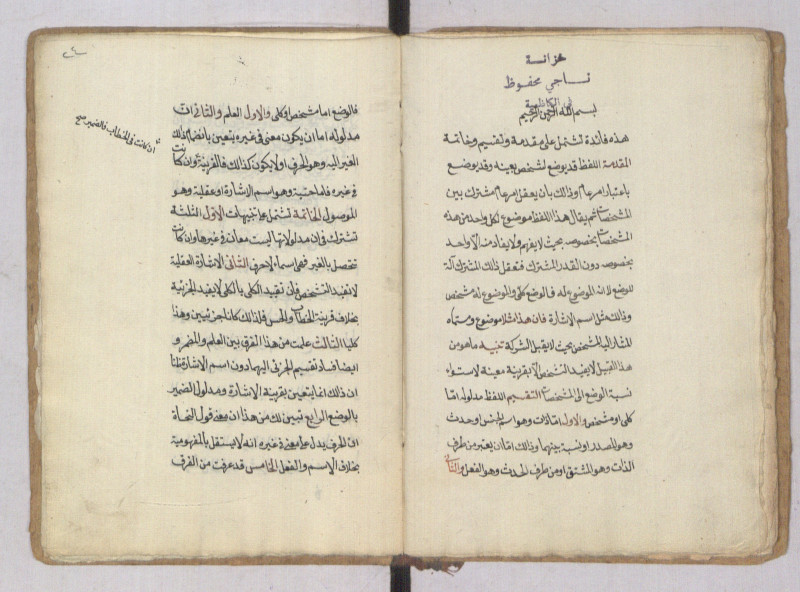 خزانة
ناجي محفوظ
الكاظمية
بسم الله الرحمن الرحيم
هذه فائدة تشتمل على مقدمة وتقسيم وخاتمة
المقدمة اللفظ قد يوضع لشخص بعينه وقد يوضع
باعتبار امر عام وذلك بان يعقل امر عام مشترك بين
المشخصات ثم يقال هذا اللفظ موضوع لكل واحد من هذه
المشخصات بخصوصه بحيث لا يفهم ولا يفاد منه الا واحد
بخصوصه دون القدر المشترك فتعقل ذلك المشترك آلة
للوضع لا انه الموضوع له فالوضع كلي والموضوع له مشخص
وذلك مثل اسم الاشارة فان هذا مثلا موضوع ومسماه
المشار اليه المشخص بحيث لا يقبل الشركة تنبيه ما هو من
هذا القبيل لا يفيد التشخص الا بقرينة معينة لاستواء
نسبة الوضع الى المشخصات التقسيم اللفظ مدلوله اما
كلي او مشخص والاول اما ذات وهو اسم الجنس او حدث
وهو المصدر او نسبة بينهما وذلك اما ان يعتبر من طرف
الذات وهو المشتق او من طرف الحدث وهو الفعل والثاني
فالوضع اما مشخص او كلي والاول العلم والثاني ان
مدلوله اما ان يكون معنى في غيره يتعين بانضمام ذلك
الغير اليه وهو الحرف او لا يكون كذلك فالقرينة ان كانت
في غيره فاما حسية وهو اسم الاشارة او عقلية وهو
الموصول الخاتمة تشتمل على تنبيهات الاول الثلثة
تشترك في ان مدلولاتها ليست معان في غيرها وان كانت
تتحصل بالغير فهي اسماء لا حرف الثاني الاشارة العقلية
لا تفيد التشخص فان تقييد الكلي بالكلي لا يفيد الجزئية
بخلاف قرينة الخطاب والحس فلذلك كانا جزئيين وهذا
كليا الثالث علمت من هذا الفرق بين العلم والمضمر و
ايضا فساد تقسيم الجزئي اليهما دون اسم الاشارة ظنا
ان ذلك انما يتعين بقرينة الاشارة ومدلول الضمير
بالوضع الرابع تبين لك من هذا ان معنى قول النحاة
ان الحرف يدل على معنى في غيره انه لا يستقل بالمفهومية
بخلاف الاسم والفعل الخامس قد عرفت من الفرق
ان كانت في الخطاب فالضمير صح